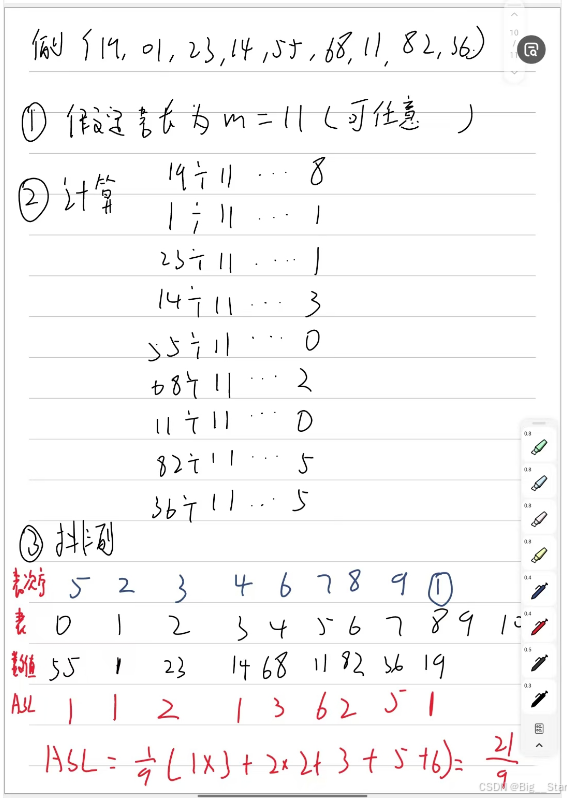 例 (19, 01, 23, 14, 55, 68, 11, 82, 36)
① 假定表长为 m = 11 (可任意 )
② 计算 19÷11 … 8
1÷11 … 1
23÷11 … 1
14÷11 … 3
55÷11 … 0
68÷11 … 2
11÷11 … 0
82÷11 … 5
36÷11 … 5
③ 排列
表次序 5 2 3 4 6 7 8 9 ①
表 0 1 2 3 4 5 6 7 8 9 10
数值 55 1 23 14 68 11 82 36 19
ASL 1 1 2 1 3 6 2 5 1
ASL = 1/9 (1×3 + 2×2+ 3 + 5 +6) = 21/9
10
/
11
0.8
0.8
0.8
0.8
0.4
0.4
0.5
0.3
CSDN @Big__Star